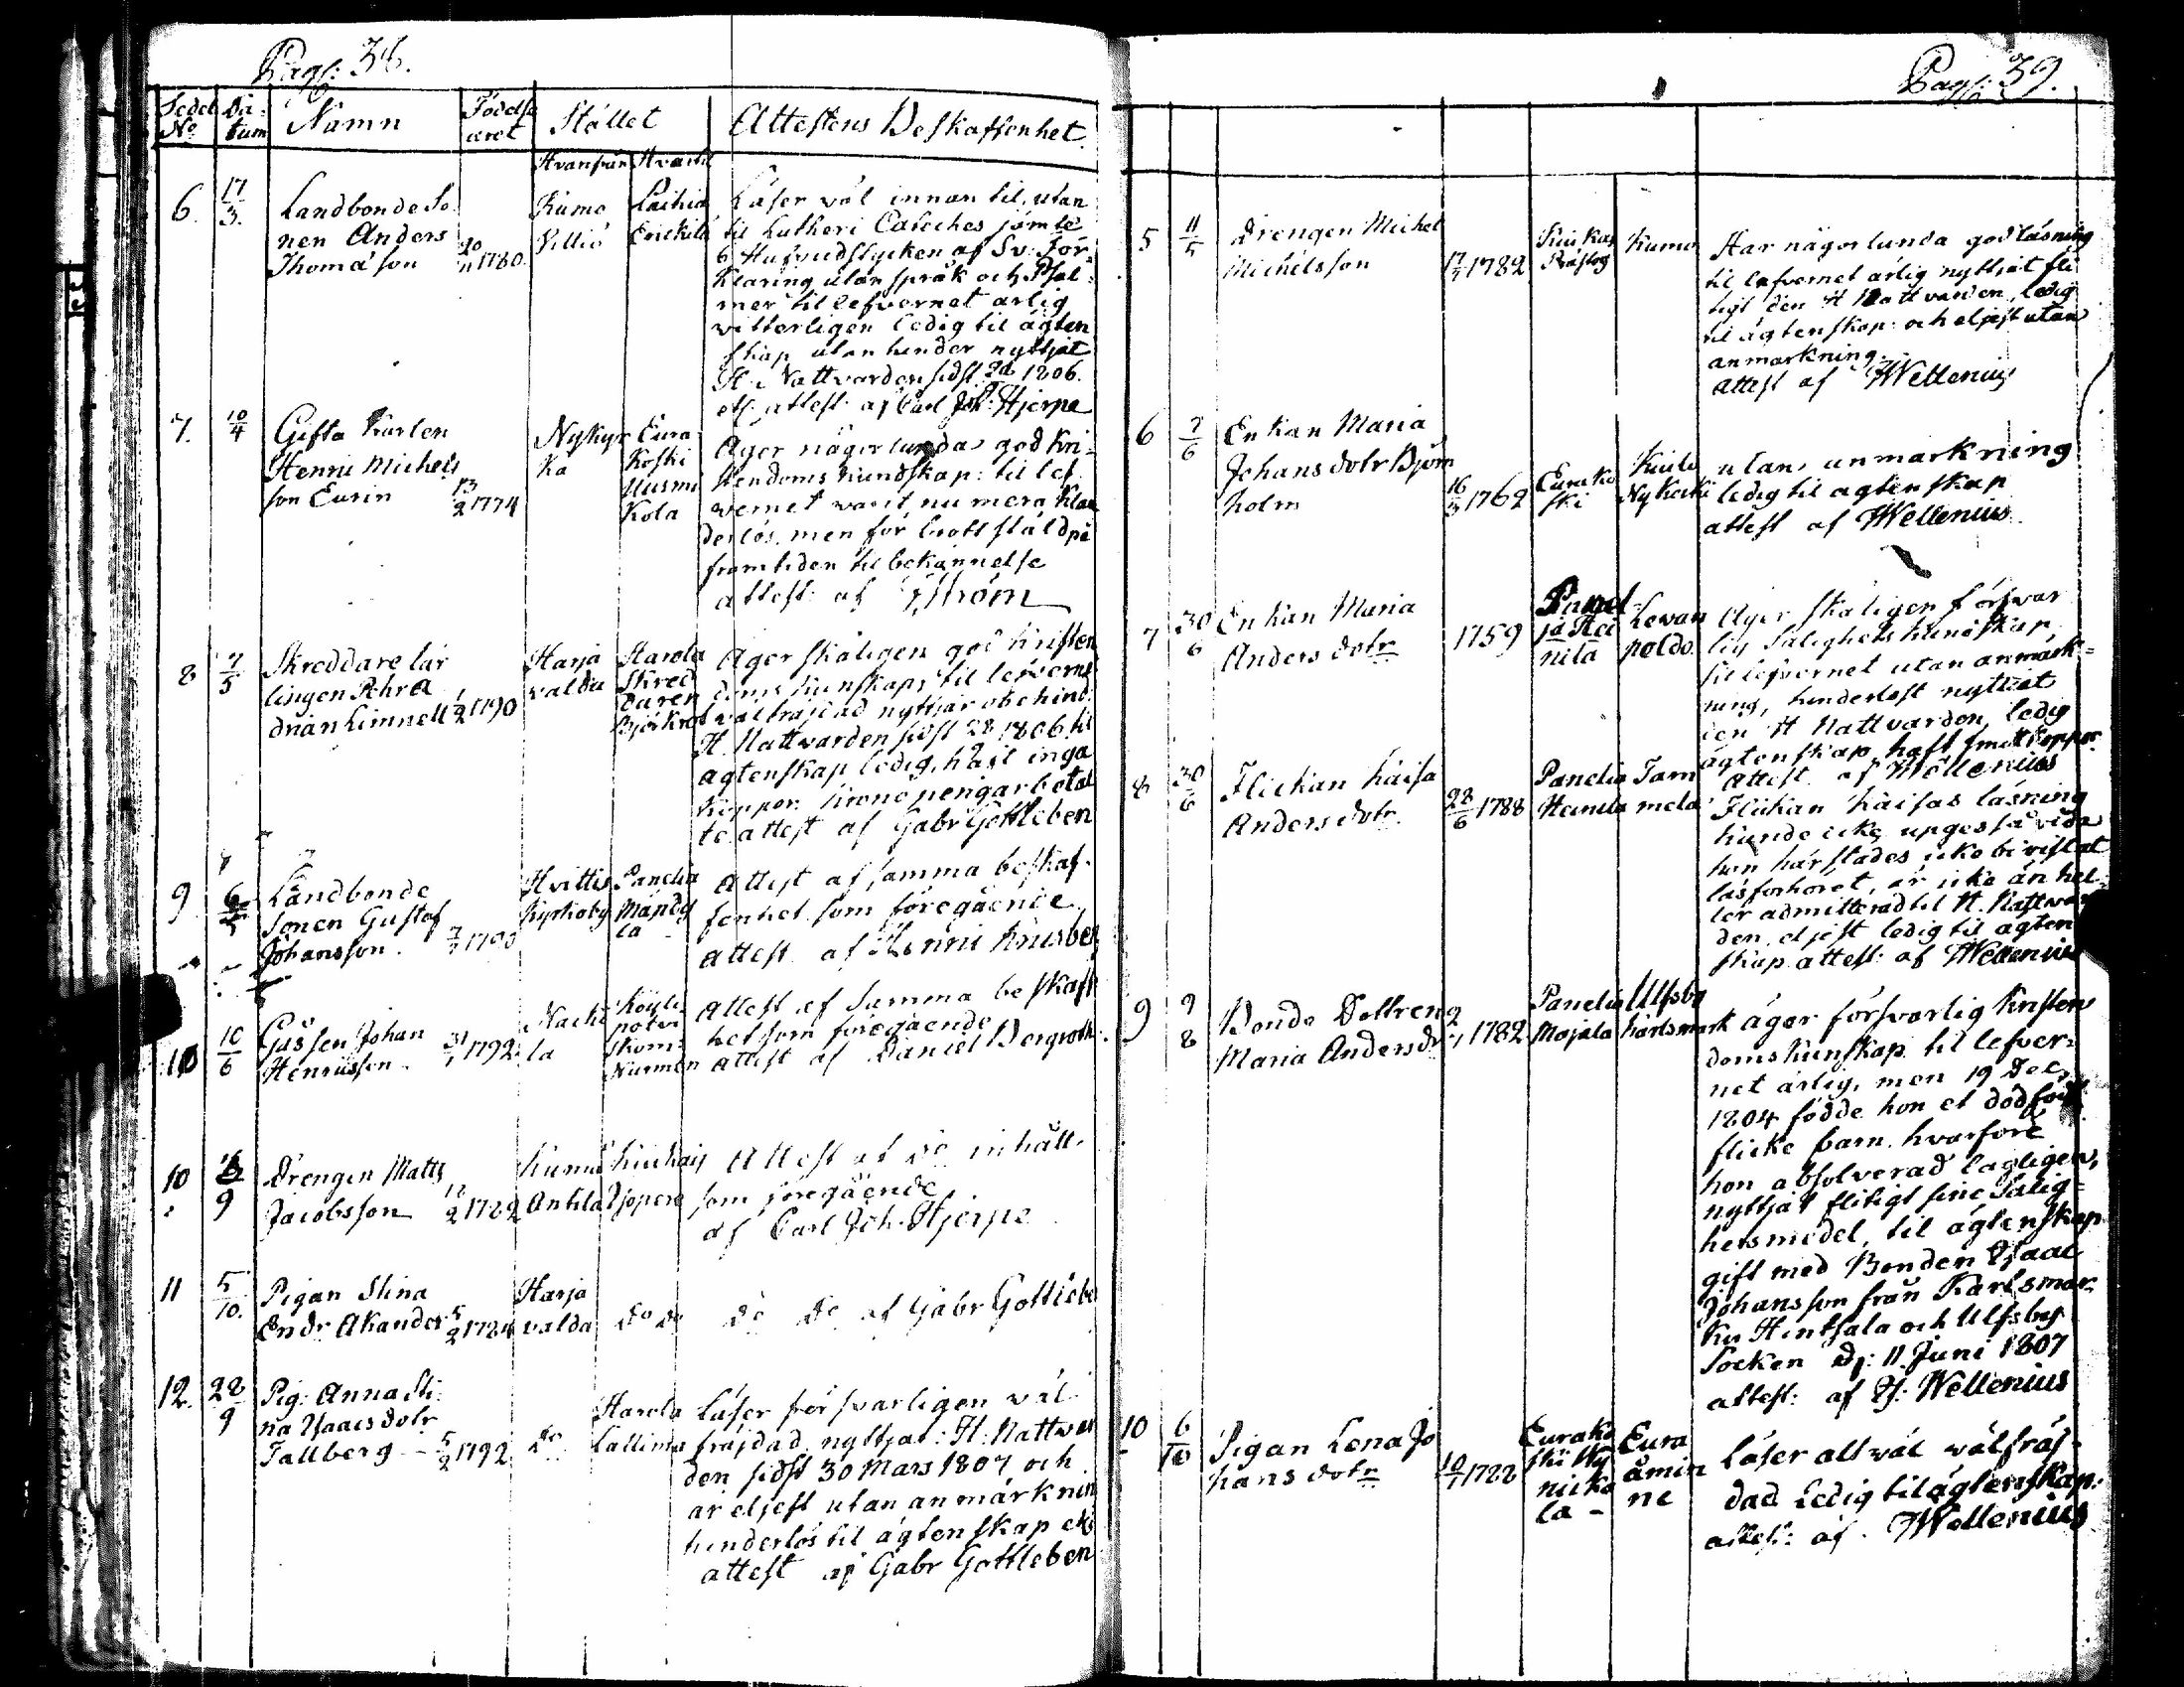 Pag: 38.
Sedel No Da-tum Namn Födelse året Stället Attestens Beskaffenhet
Hvarifrån Hvartil
6. 17/3. Landbonde So-
nen Anders
Thomasson 20/11 1780.
Kumo
Villiö
Laihia
Läser väl innan til, utan
til Lutheri Cateches jämte
6 Hufvudstycken af Sv: För-
klaring utan språk och Psal-
mer til lefvernet ärlig
vitterligen ledig til ägten
skap utan hinder nyttjat
H. Nattvarden sidst 1806.
attest af Carl Joh: Hjerpe
7. 10/4 Gifta Karlen
Henric Michels
son Eurin 13/2 1774
Nykyr
ka
Eura
Koski
Uusmi
Kola
Äger någorlunda god Kri-
stendoms kundskap: til lef
wernet varit nu mera klan
derlös, men för brott stäld på
framtiden til bekännelse
attest: af
8 7/5 Skreddare lär
lingen Pehr A
drian Limnell 1/2 1790
Harja
valda
Harola
Skred
daren
Björkrot
Äger skäligen god kristen
doms kunskap, til leverne
välfrajdad nyttjar obehind
H. Nattvarden sidst 28 1806 til
ägtenskap ledig, haft inga
koppor. Krono pengar betal
te attest af Gabr Gottleben
9 6/5 Landbonde
Sonen Gustaf
Johansson. 7/7 1790
Hvittis
Kyrkoby
Panelia
Mänðy
la
Attest af samma beskaf-
fenhet som föregående
attest af Henric Krusberg
10 10/6 Gossen Johan
Henricsson 31/1 1792
Nacki
la
Köyli
potvi
Skom
Nurmen
attest af Samma beskaff
het som föregående
attest af Daniel Bergroth
10 9 Drengen Matts
Jacobsson 12/2 1782
Kumo
Anttila
Kiukais
Attest af do inhält
som föregående
af Carl Joh. Hjerpe
11 5/10. Pigan Stina
Endr Akander 5/2 1784
Harja
valda
Do Do Do Do af Gabr Gottlebe
12. 28/9 Pig: Anna Sti
na Isaacs dotr
Tallberg - 5/2 1792
Do
Harola
Lallima
Läser försvarligen väl
frajdad nyttjat: H: Nattvar
den sidst 30 Mars 1807 och
är eljest utan anmärknin
hinderlös til ägtenskap
attest af Gabr Gottleben
Pag: 39.
5 11/5 Drengen Michel
Michelsson 17/7 1782
Kiukais
Prästog
Kumo
Har någorlunda god läsning
til lefvernet ärlig nyttjat fli
tigt den H Nattvarden, ledig
til ägtenskap och eljest utan
anmärkning.
attest af Wellenius
6 7/6 Enkan Maria
Johans dotr Björn
holm 16/3 1762
Eurako
ski
Kiula
Nykoski
utan anmarkning
ledig til ägtenskap
attest af Wellenius
7 30/6 Enkan Maria
Anders dotr 1759
Panel
ja Hei
nila
Levan
poldo
Äger skäligen försvar
lig Salighets kundskap,
til lefvernet utan anmärk=
ning, hinderlöst nyttjat
den H Nattvarden, ledig
ägtenskap, haft smittkoppor
attest af Wellenius
8 30/6 Flickan Kaisa
Anders dotr 28/6 1788
Panelia
Heinila
Tam
mela
Flickan Kaisas läsning
kunde icke upges så vida
hon härstädes icke bivistat
läsförhöret, är icke än hel
ler admitterad til H. Nattvar
den eljest ledig til ägten
skap attest: af Wellenius
9 9/8 Bonde Dottren
Maria Anders dr 2/7 1782
Panelia
Mojala
Ulfsby
Karlsmark
äger försvarlig Kristen
doms kunskap til lefver-
net ärlig, men 19 Dec
1804 födde hon et dödfödt
flicke barn, hvarföre
hon absolverad lagligen,
nyttjat flitigt sine Salig=
hets medel, til ägtenskap
gift med Bonden Isaac
Johansson från Karlsmar-
ku Hintsala och Ulfsby
Socken d: 11 Juni 1807
attest: af H: Wellenius
10 6/10 Pigan Lena Jo
hans dotr 10/7 1788
Eurako
ski Ny
nicko
la -
Eura
åmin
ne
läser allt väl välfräj-
dad Ledig til ägtenskap:
attest: af Wellenius